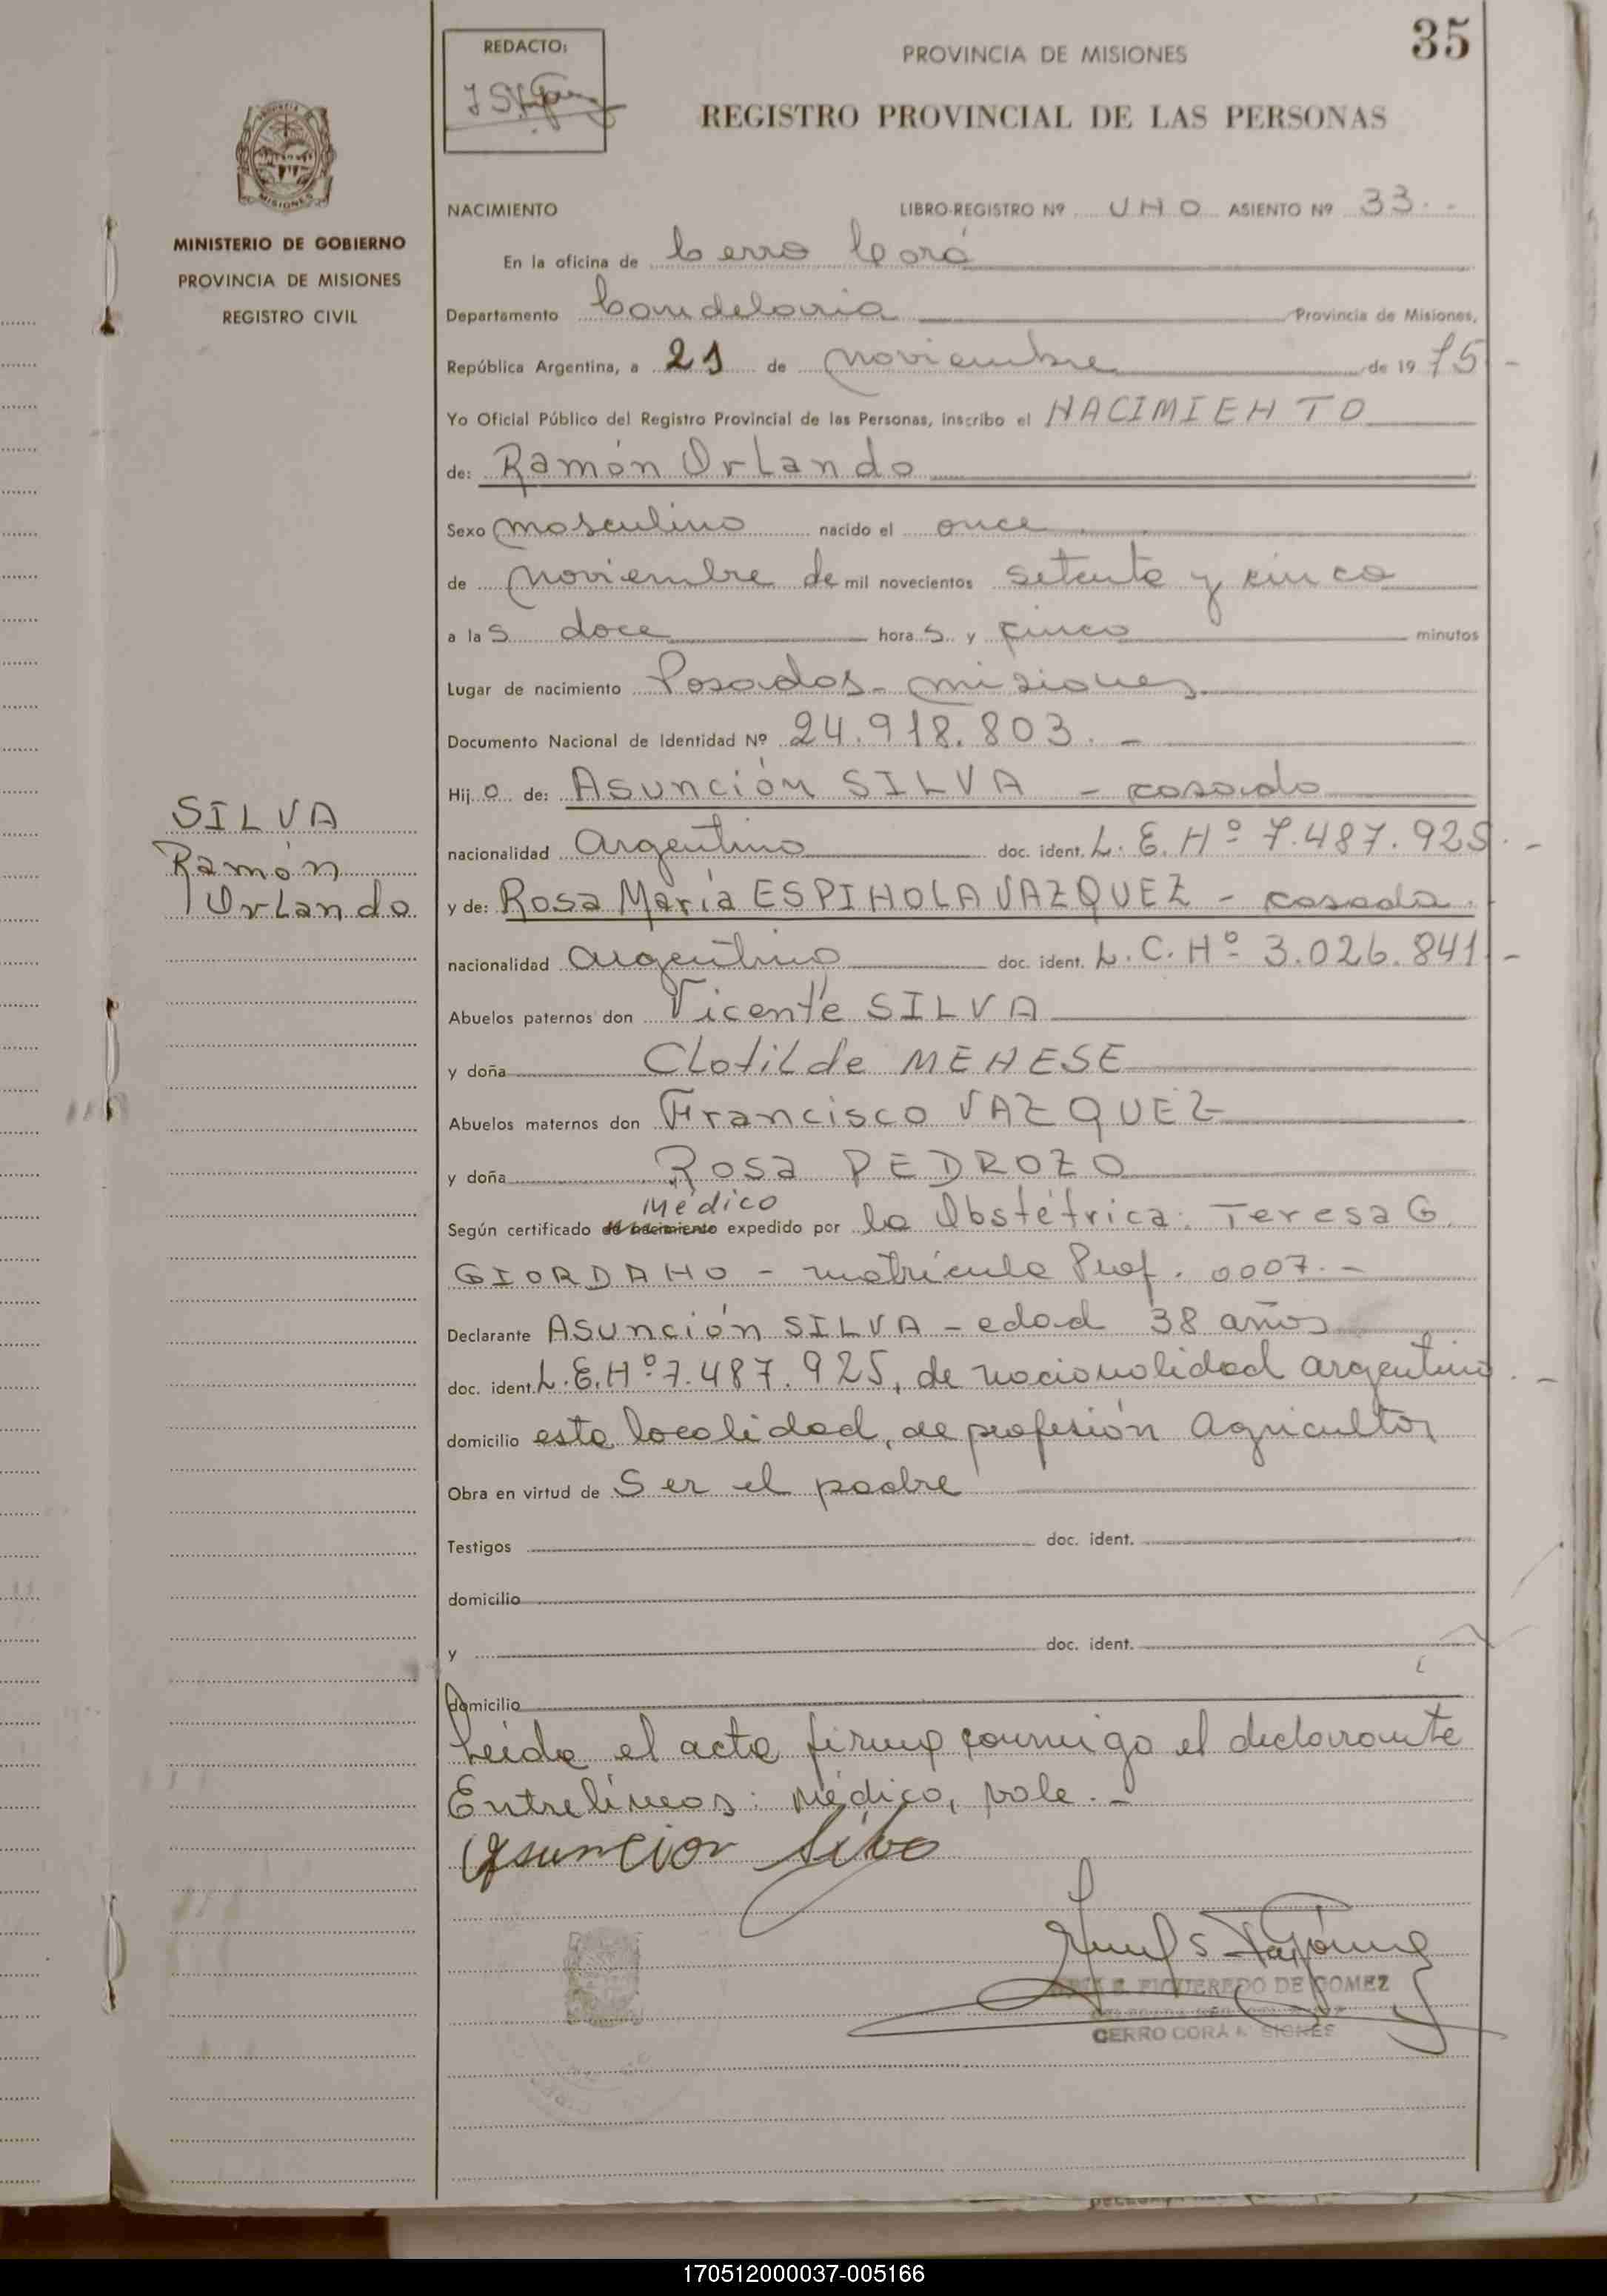 35
REDACTO:
PROVINCIA DE MISIONES
REGISTRO PROVINCIAL DE LAS PERSONAS
MISIONES
MINISTERIO DE GOBIERNO
PROVINCIA DE MISIONES
REGISTRO CIVIL
NACIMIENTO LIBRO-REGISTRO Nº UNO ASIENTO Nº 33.-
En la oficina de Cerro Corá
Departamento Candelaria Provincia de Misiones,
República Argentina, a 21 de noviembre de 1975.-
Yo Oficial Público del Registro Provincial de las Personas, inscribo el NACIMIENTO
de: Ramón Orlando
Sexo masculino nacido el once
de noviembre de mil novecientos setenta y cinco
a las doce horas y cinco minutos
Lugar de nacimiento Posadas - misiones
Documento Nacional de Identidad Nº 24.918.803.-
Hijo de: Asunción SILVA - casado
nacionalidad Argentino doc. ident. L.E.Nº 7.487.925.-
y de: Rosa María ESPINOLA VAZQUEZ - casada.
nacionalidad argentino doc. ident. L.C.Nº 3.026.841.-
SILVA
Ramón
Orlando
Abuelos paternos don Vicente SILVA
y doña Clotilde MENESE
Abuelos maternos don Francisco VAZQUEZ
y doña Rosa PEDROZO
Médico
Según certificado de nacimiento expedido por la Obstétrica: Teresa G.
GIORDANO - matrícula Prof. 0007.-
Declarante Asunción SILVA - edad 38 años
doc. ident. L.E.Nº 7.487.925, de nacionalidad argentino.-
domicilio esta localidad, de profesión Agricultor
Obra en virtud de Ser el padre
Testigos doc. ident.
domicilio
y doc. ident.
domicilio
Leída el acta firma conmigo el declarante
Entrelíneas: Médico, vale.-
Asuncion Silva
S. FIGUEREDO DE GOMEZ
CERRO CORÁ MISIONES
170512000037-005166